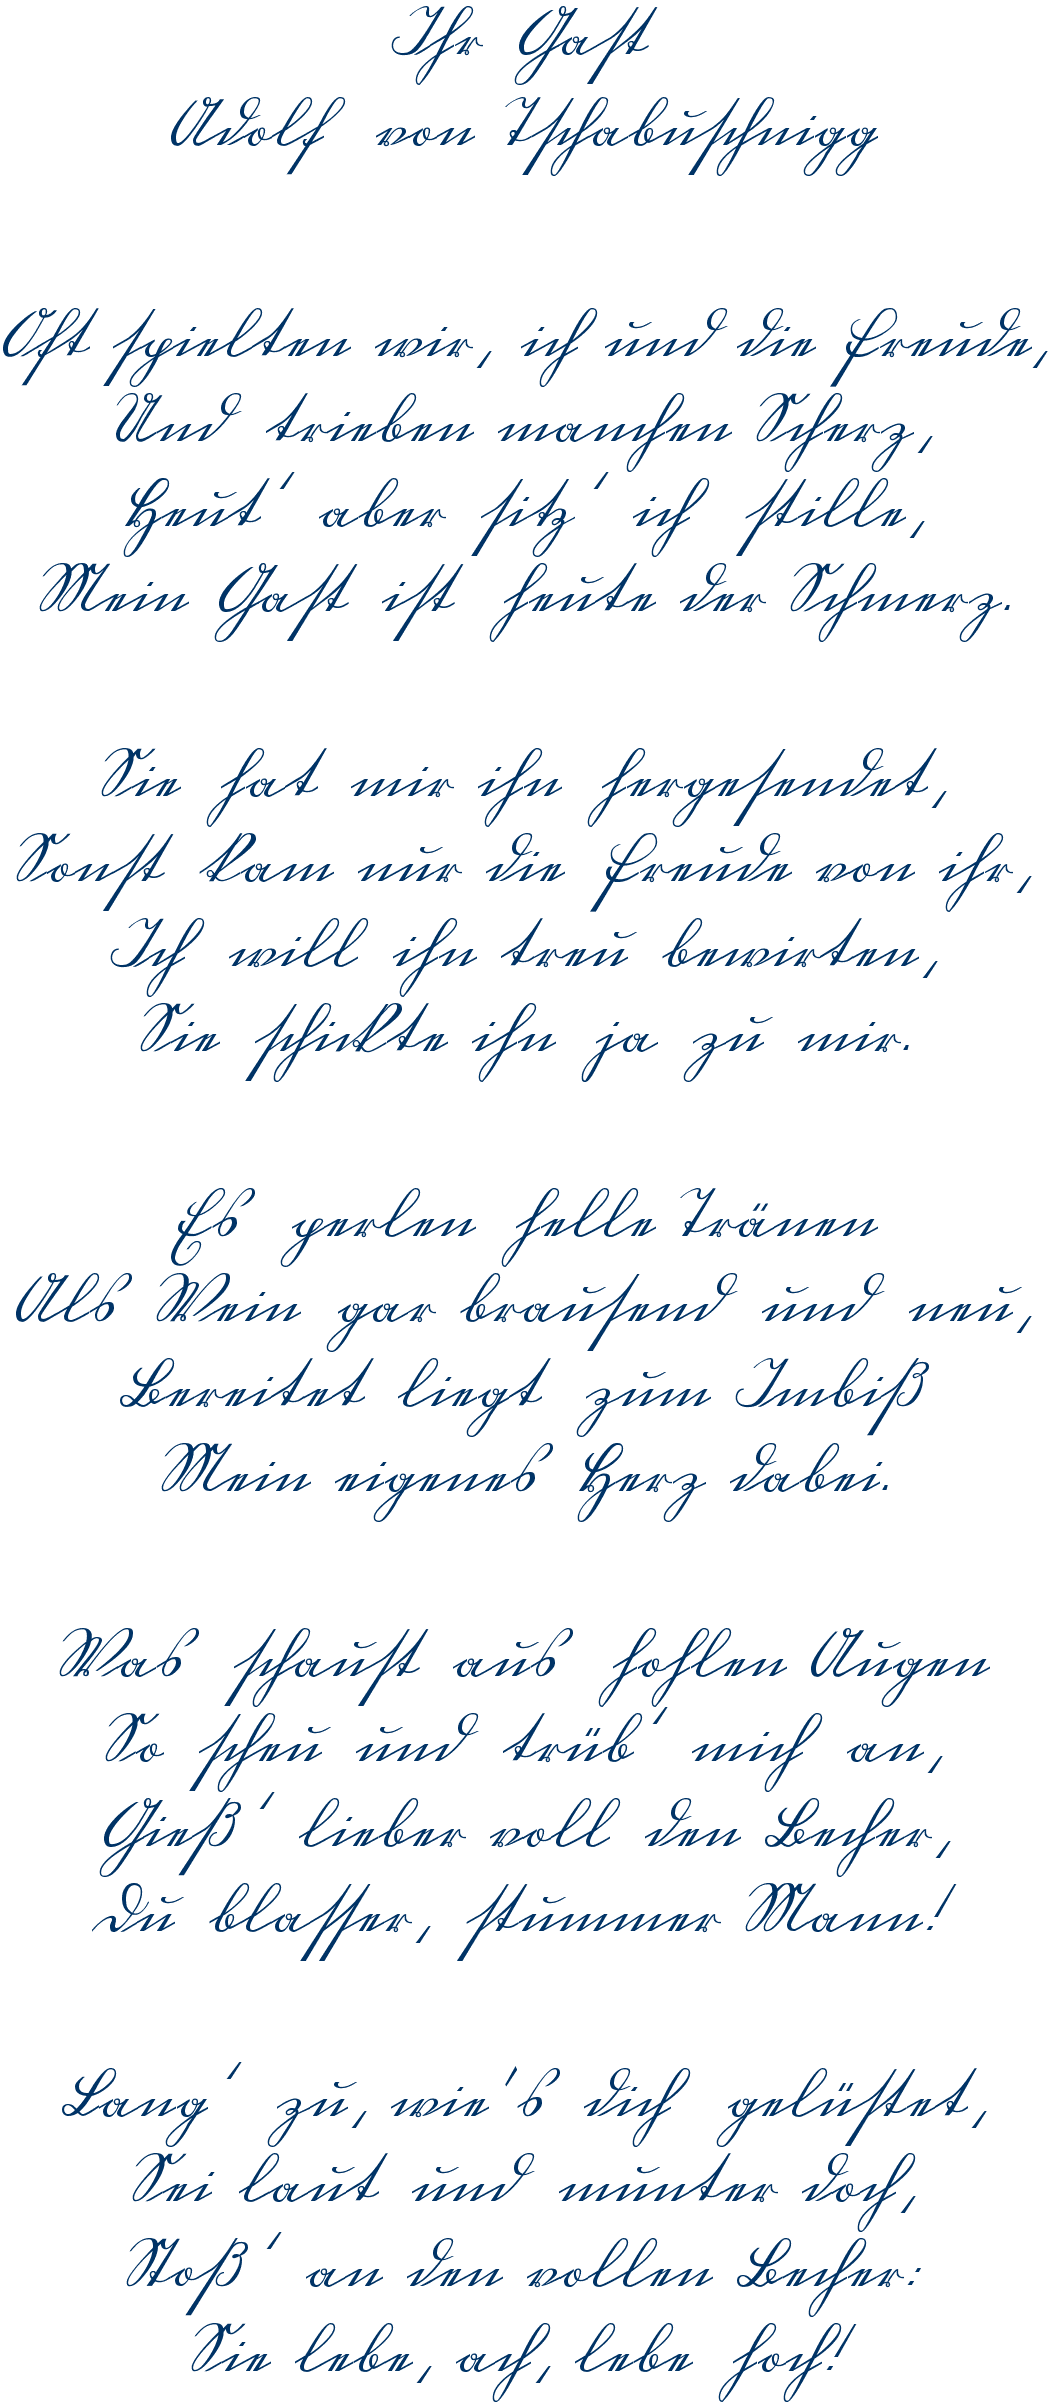 Ihr Gast
Adolf von Tschabuschnigg
Oft spielten wir, ich und die Freude,
Und trieben manchen Scherz,
Heut' aber sitz' ich stille,
Mein Gast ist heute der Schmerz.
Sie hat mir ihn hergesendet,
Sonst kam nur die Freude von ihr,
Ich will ihn treu bewirten,
Sie schickte ihn ja zu mir.
Es perlen helle Tränen
Als Wein gar brausend und neu,
Bereitet liegt zum Imbiß
Mein eigenes Herz dabei.
Was schaust aus hohlen Augen
So scheu und trüb' mich an,
Gieß' lieber voll den Becher,
Du blasser, stummer Mann!
Lang' zu, wie's dich gelüstet,
Sei laut und munter doch,
Stoß' an den vollen Becher:
Sie lebe, ach, lebe hoch!